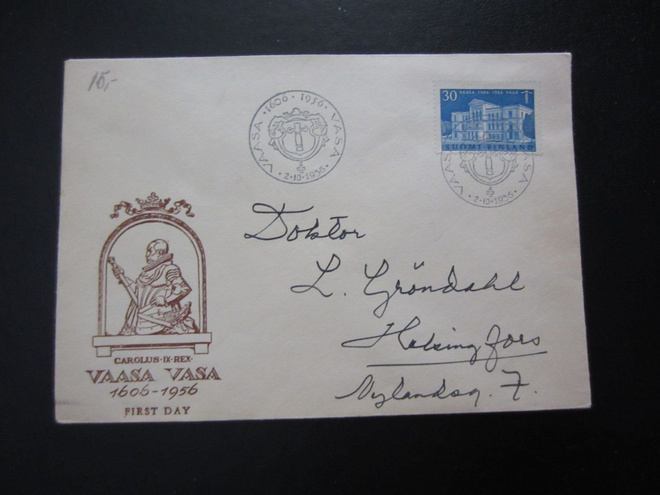 15,-
VAASA · 1606 · 1956 · VASA
· 2·10·1956 ·
30 VAASA 1606 1956 VASA
SUOMI FINLAND
VAASA VASA
· 2·10·1956 ·
Doktor
L. Gröndahl
Helsingfors
Nylandsg. 7.
CAROLUS·IX·REX·
VAASA VASA
1606-1956
FIRST DAY